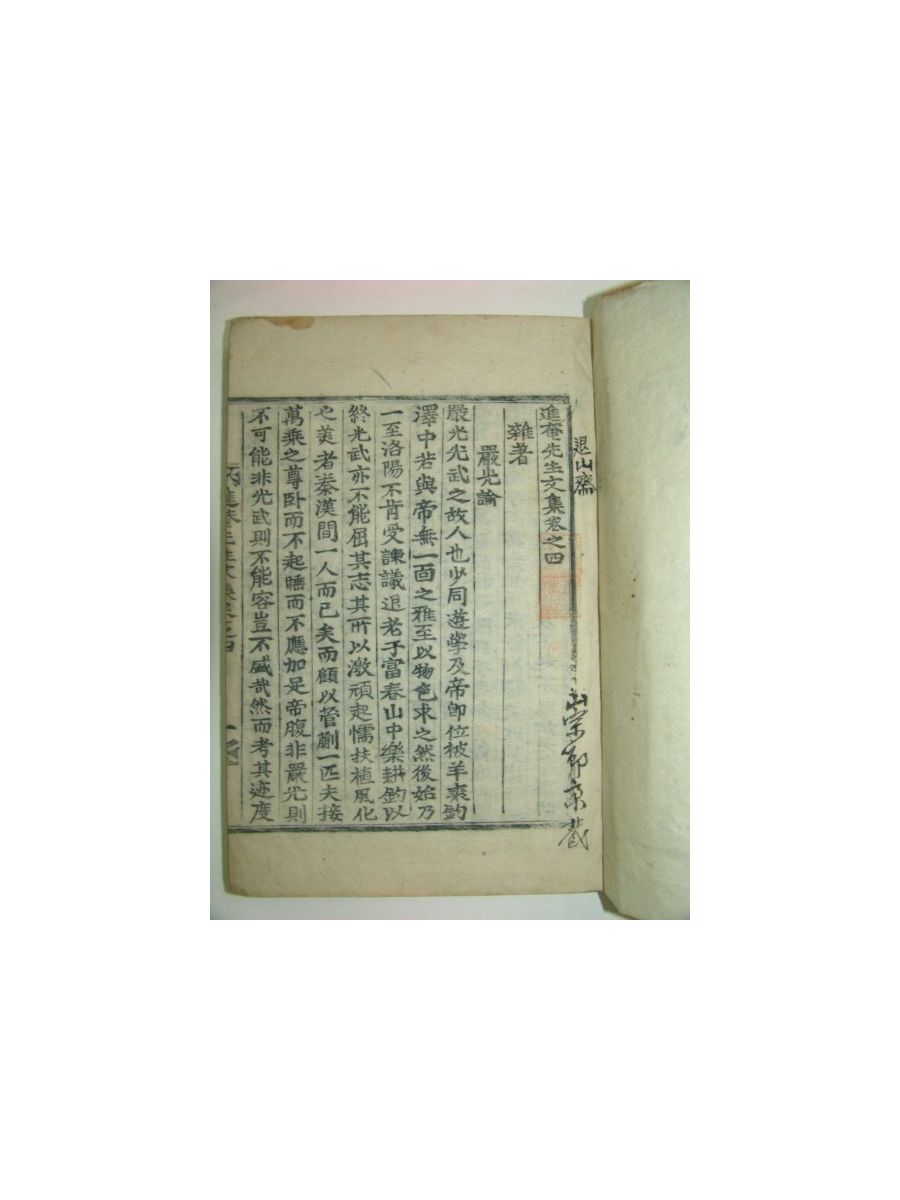 退山齋
山宗
藏
進菴先生文集卷之四
雜著
嚴光論
嚴光光武之故人也少同遊學及帝卽位被羊裘釣
澤中若與帝無一面之雅至以物色求之然後始乃
一至洛陽不肯受諫議退老于富春山中樂耕釣以
終光武亦不能屈其志其所以激頑起懦扶植風化
之美者秦漢間一人而已矣而顧以管蒯一匹夫接
萬乘之尊卧而不起睡而不應加足帝腹非嚴光則
不可能非光武則不能容豈不盛哉然而考其迹度
進菴先生文集卷之四 一